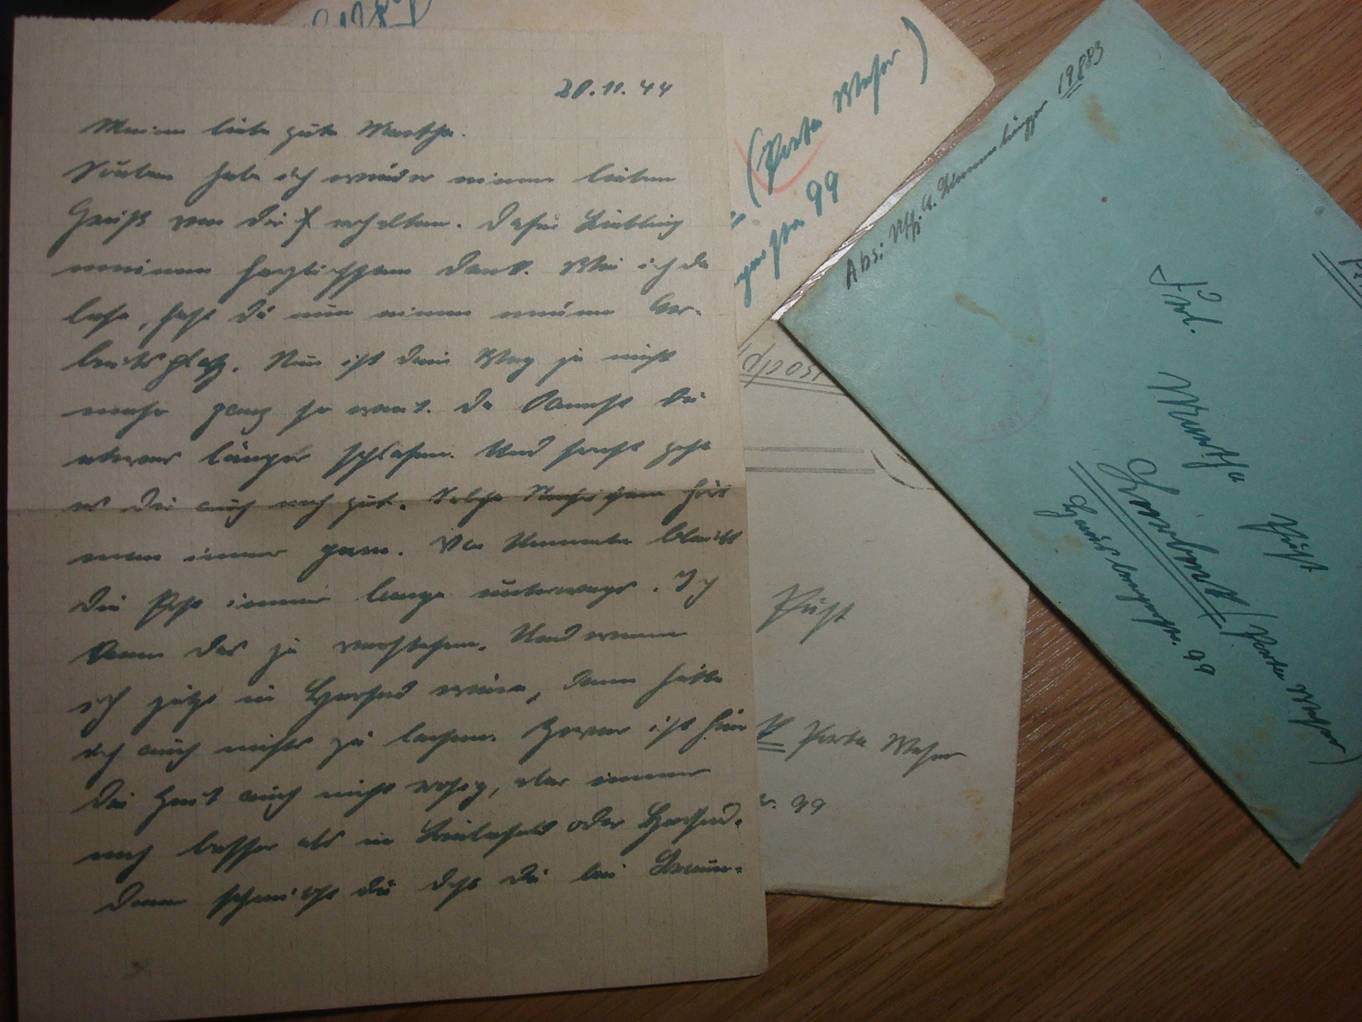 20.11.44
Meine liebe gute Martha.
Soeben habe ich wieder einen lieben
Gruß von dir erhalten. Dafür Liebling
meinen herzlichsten Dank. Wie ich da
lese, hast du nun einen neuen Ar-
beitsplatz. Nun ist dein Weg ja nicht
mehr ganz so weit. Da kannst du
etwas länger schlafen. Und sonst geht
es dir auch noch gut. Solche Nachrichten hört
man immer gern. Von bleibt
die Post immer lange unterwegs. Ich
kann das ja verstehen. Und wenn
ich jetzt in Herford wäre, dann hätte
ich auch nichts zu lachen. Zwar ist hier
die Zeit auch nicht rosig, aber immer
noch besser als in Bielefeld oder Herford.
Dann schreibst du daß du bei
(Porta Weser)
99
Püst
Porta Weser
99
Abs: Uffz. A. 19883
Frl.
Martha Püst
Lerbeck (Porta Weser)
99